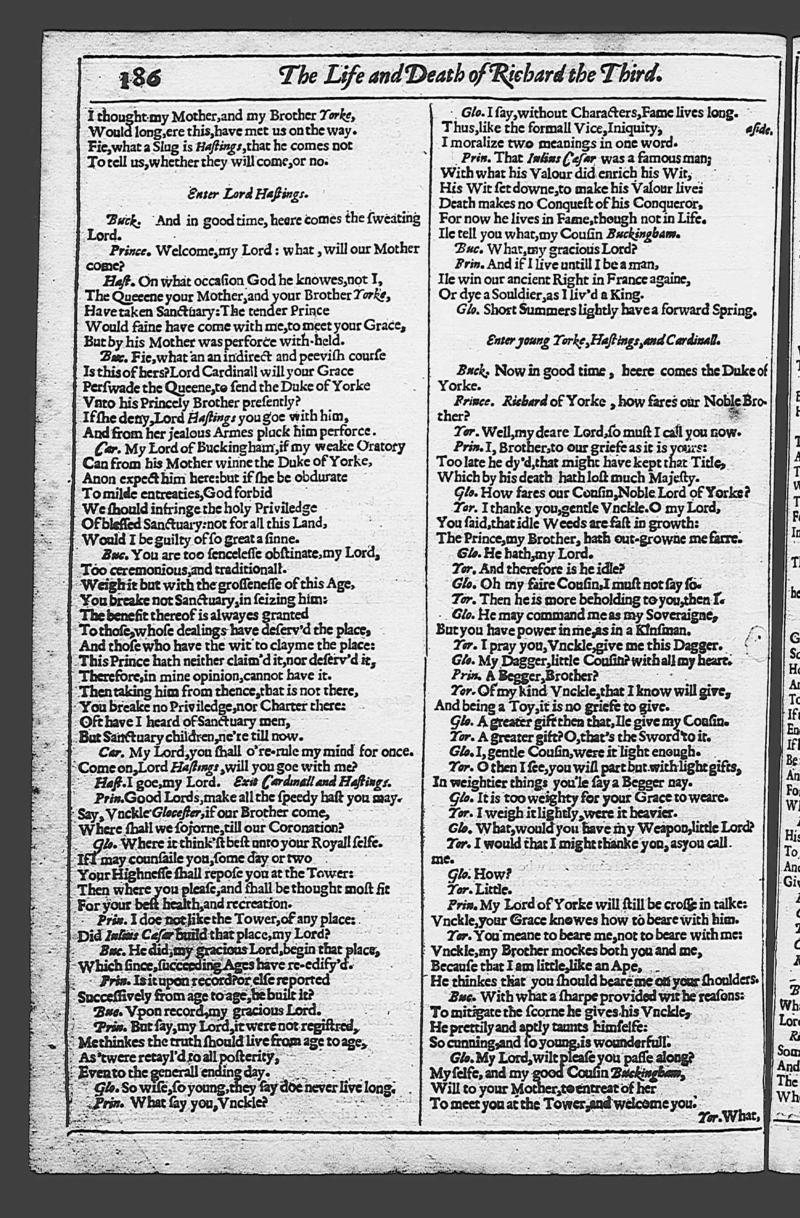 186
The Life and Death of Richard the Third.
I thought my Mother, and my Brother Yorke,
Would long, ere this, haue met us on the way.
Fie, what a Slug is Haſtings, that he comes not
To tell us, whether they will come, or no.
Enter Lord Haſtings.
Buck. And in good time, heere comes the ſweating
Lord.
Prince. Welcome, my Lord: what, will our Mother
come?
Haſt. On what occaſion God he knowes, not I,
The Queene your Mother, and your Brother Yorke,
Have taken Sanctuary: The tender Prince
Would faine have come with me, to meet your Grace,
But by his Mother was perforce with-held.
Buc. Fie, what an an indirect and peeviſh courſe
Is this of hers? Lord Cardinall will your Grace
Perſwade the Queene, to ſend the Duke of Yorke
Vnto his Princely Brother preſently?
If ſhe deny, Lord Haſtings you goe with him,
And from her jealous Armes pluck him perforce.
Car. My Lord of Buckingham, if my weake Oratory
Can from his Mother winne the Duke of Yorke,
Anon expect him here: but if ſhe be obdurate
To milde entreaties, God forbid
We ſhould infringe the holy Priviledge
Of bleſſed Sanctuary: not for all this Land,
Would I be guilty of ſo great a ſinne.
Buc. You are too ſenceleſſe obſtinate, my Lord,
Too ceremonious, and traditionall.
Weigh it but with the groſſeneſſe of this Age,
You breake not Sanctuary, in ſeizing him:
The benefit thereof is alwayes granted
To thoſe, whoſe dealings have deſerv'd the place,
And thoſe who have the wit to clayme the place:
This Prince hath neither claim'd it, nor deſerv'd it,
Therefore, in mine opinion, cannot have it.
Then taking him from thence, that is not there,
You breake no Priviledge, nor Charter there:
Oft have I heard of Sanctuary men,
But Sanctuary children, ne're till now.
Car. My Lord, you ſhall o're-rule my mind for once.
Come on, Lord Haſtings, will you goe with me?
Haſt. I goe, my Lord. Exit Cardinall and Haſtings.
Prin. Good Lords, make all the ſpeedy haſt you may.
Say, Vnckle Gloceſter, if our Brother come,
Where ſhall we ſojorne, till our Coronation?
Glo. Where it think'ſt beſt unto your Royall ſelfe.
If I may counſaile you, ſome day or two
Your Highneſſe ſhall repoſe you at the Tower:
Then where you pleaſe, and ſhall be thought moſt fit
For your beſt health, and recreation.
Prin. I doe not like the Tower, of any place:
Did Iulius Cæſar build that place, my Lord?
Buc. He did, my gracious Lord, begin that place,
Which ſince, ſucceeding Ages have re-edify'd.
Prin. Is it upon record? or elſe reported
Succeſſively from age to age, he built it?
Buc. Vpon record, my gracious Lord.
Prin. But ſay, my Lord, it were not regiſtred,
Me thinkes the truth ſhould live from age to age,
As 'twere retayl'd to all poſterity,
Even to the generall ending day.
Glo. So wiſe, ſo young, they ſay doe never live long.
Prin. What ſay you, Vnckle?
Glo. I ſay, without Characters, Fame lives long.
Thus, like the formall Vice, Iniquity, aſide.
I moralize two meanings in one word.
Prin. That Iulius Cæſar was a famous man;
With what his Valour did enrich his Wit,
His Wit ſet downe, to make his Valour live:
Death makes no Conqueſt of his Conqueror,
For now he lives in Fame, though not in Life.
Ile tell you what, my Couſin Buckingham.
Buc. What, my gracious Lord?
Prin. And if I live untill I be a man,
Ile win our ancient Right in France againe,
Or dye a Souldier, as I liv'd a King.
Glo. Short Summers lightly have a forward Spring.
Enter young Yorke, Haſtings, and Cardinall.
Buck. Now in good time, heere comes the Duke of
Yorke.
Prince. Richard of Yorke, how fares our Noble Bro-
ther?
Yor. Well, my deare Lord, ſo muſt I call you now.
Prin. I, Brother, to our griefe as it is yours:
Too late he dy'd, that might have kept that Title,
Which by his death hath loſt much Majeſty.
Glo. How fares our Couſin, Noble Lord of Yorke?
Yor. I thanke you, gentle Vnckle. O my Lord,
You ſaid, that idle Weeds are faſt in growth:
The Prince, my Brother, hath out-growne me farre.
Glo. He hath, my Lord.
Yor. And therefore is he idle?
Glo. Oh my faire Couſin, I muſt not ſay ſo.
Yor. Then he is more beholding to you, then I.
Glo. He may command me as my Soveraigne,
But you have power in me, as in a Kinſman.
Yor. I pray you, Vnckle, give me this Dagger.
Glo. My Dagger, little Couſin? with all my heart.
Prin. A Begger, Brother?
Yor. Of my kind Vnckle, that I know will give,
And being a Toy, it is no griefe to give.
Glo. A greater gift then that, Ile give my Couſin.
Yor. A greater gift? O, that's the Sword to it.
Glo. I, gentle Couſin, were it light enough.
Yor. O then I ſee, you will part but with light gifts,
In weightier things you'le ſay a Begger nay.
Glo. It is too weighty for your Grace to weare.
Yor. I weigh it lightly, were it heavier.
Glo. What, would you have my Weapon, little Lord?
Yor. I would that I might thanke you, as you call
me.
Glo. How?
Yor. Little.
Prin. My Lord of Yorke will ſtill be croſſe in talke:
Vnckle, your Grace knowes how to beare with him.
Yor. You meane to beare me, not to beare with me:
Vnckle, my Brother mockes both you and me,
Becauſe that I am little, like an Ape,
He thinkes that you ſhould beare me on your ſhoulders.
Buc. With what a ſharpe provided wit he reaſons:
To mitigate the ſcorne he gives his Vnckle,
He prettily and aptly taunts himſelfe:
So cunning, and ſo young, is wounderfull.
Glo. My Lord, wilt pleaſe you paſſe along?
My ſelfe, and my good Couſin Buckingham,
Will to your Mother, to entreat of her
To meet you at the Tower, and welcome you.
Yor. What,